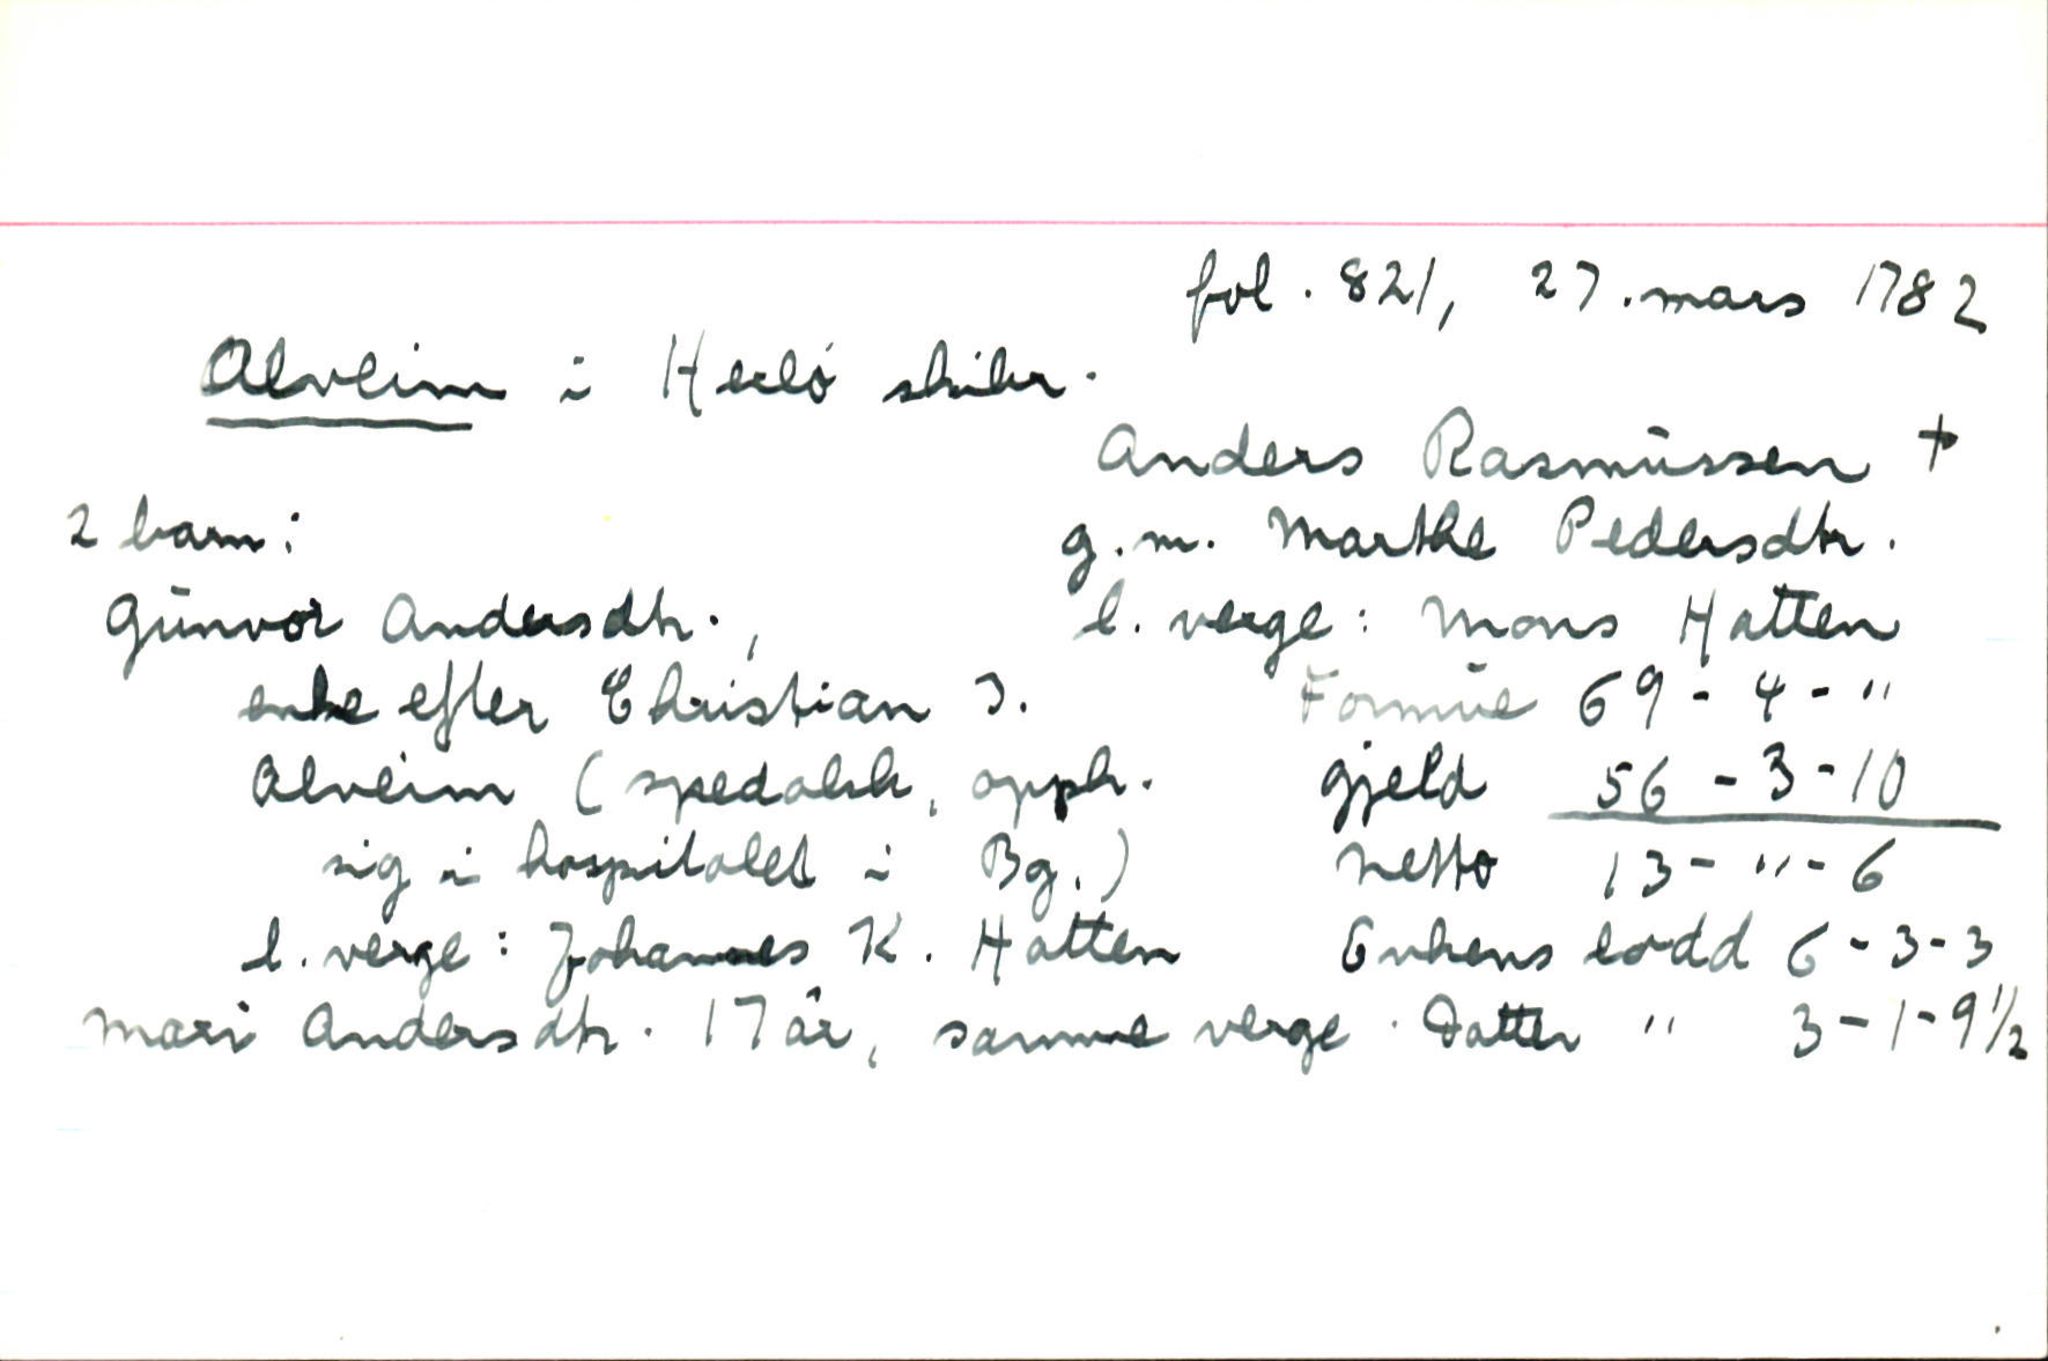 fol. 821, 27. mars 1782
Alveim i Herlø skibr.
Anders Rasmussen +
2 barn:
g.m. Marthe Pedersdtr.
Gunvor Andersdtr.,
l. verge: Mons Hatten
enke efter Christian J.
Formue 69 - 4 - "
Alveim (spedalsk, opph.
gjeld 56 - 3 - 10
sig i hospitalet i Bg.)
netto 13 - " - 6
l. verge: Johannes K. Hatten
Enkens lodd 6 - 3 - 3
Mari Andersdtr. 17 år, samme verge. Datter " 3 - 1 - 9 1/2